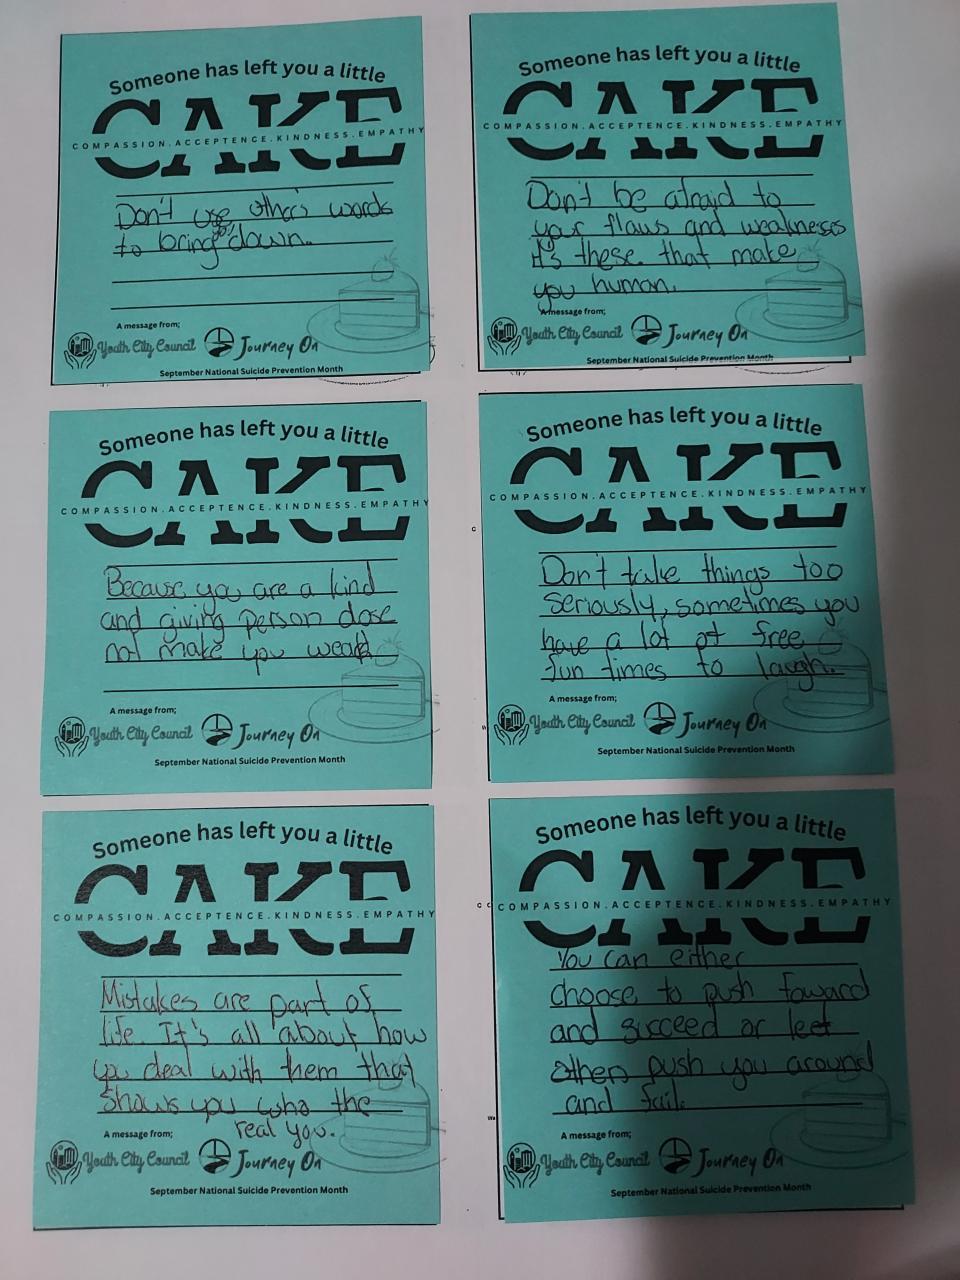 Someone has left you a little
CAKE
COMPASSION.ACCEPTENCE.KINDNESS.EMPATHY
Don't use others words
you
to bring down.
A message from;
Youth City Council Journey On
September National Suicide Prevention Month
Someone has left you a little
CAKE
COMPASSION.ACCEPTENCE.KINDNESS.EMPATHY
Don't be afraid to
your flaws and weaknesses
it's these that make
you human.
A message from;
Youth City Council Journey On
September National Suicide Prevention Month
Someone has left you a little
CAKE
COMPASSION.ACCEPTENCE.KINDNESS.EMPATHY
Because you are a kind
and giving person dose
not make you weak
A message from;
Youth City Council Journey On
September National Suicide Prevention Month
Someone has left you a little
CAKE
COMPASSION.ACCEPTENCE.KINDNESS.EMPATHY
Don't take things too
seriously, sometimes you
have a lot of free
fun times to laugh.
A message from;
Youth City Council Journey On
September National Suicide Prevention Month
Someone has left you a little
CAKE
COMPASSION.ACCEPTENCE.KINDNESS.EMPATHY
Mistakes are part of
life. It's all about how
you deal with them that
shows you who the
real you.
A message from;
Youth City Council Journey On
September National Suicide Prevention Month
Someone has left you a little
CAKE
COMPASSION.ACCEPTENCE.KINDNESS.EMPATHY
You can either
choose to push foward
and succeed or leet
others push you around
and fail.
A message from;
Youth City Council Journey On
September National Suicide Prevention Month